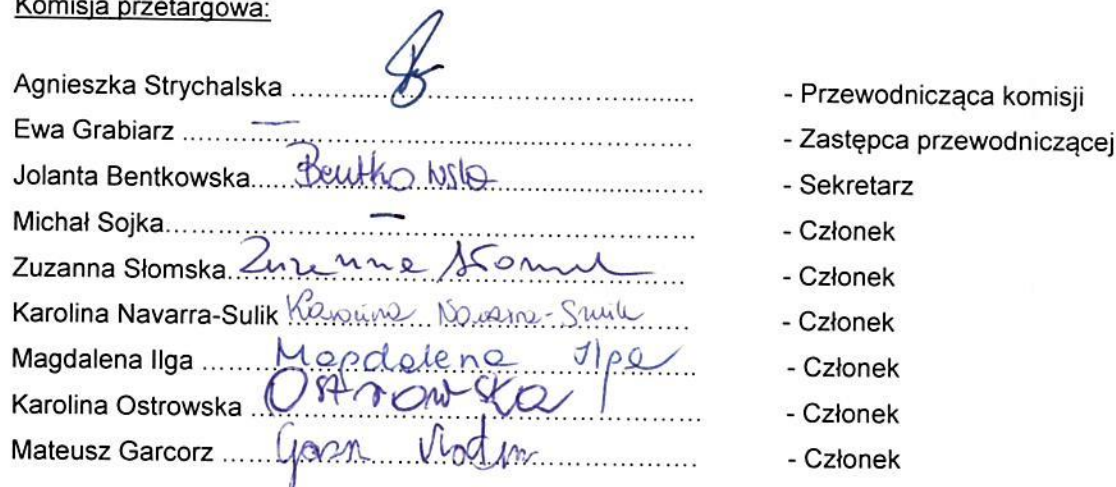 Komisja przetargowa:
Agnieszka Strychalska ........................................ - Przewodnicząca komisji
Ewa Grabiarz ........................................ - Zastępca przewodniczącej
Jolanta Bentkowska..... Bentkowska ........................................ - Sekretarz
Michał Sojka........................................ - Członek
Zuzanna Słomska. Zuzanna Słomsk ........................................ - Członek
Karolina Navarra-Sulik Karolina Navarra-Sulik ........................................ - Członek
Magdalena Ilga ...... Magdalena Ilga ........................................ - Członek
Karolina Ostrowska Ostrowska ........................................ - Członek
Mateusz Garcorz ........................................ - Członek